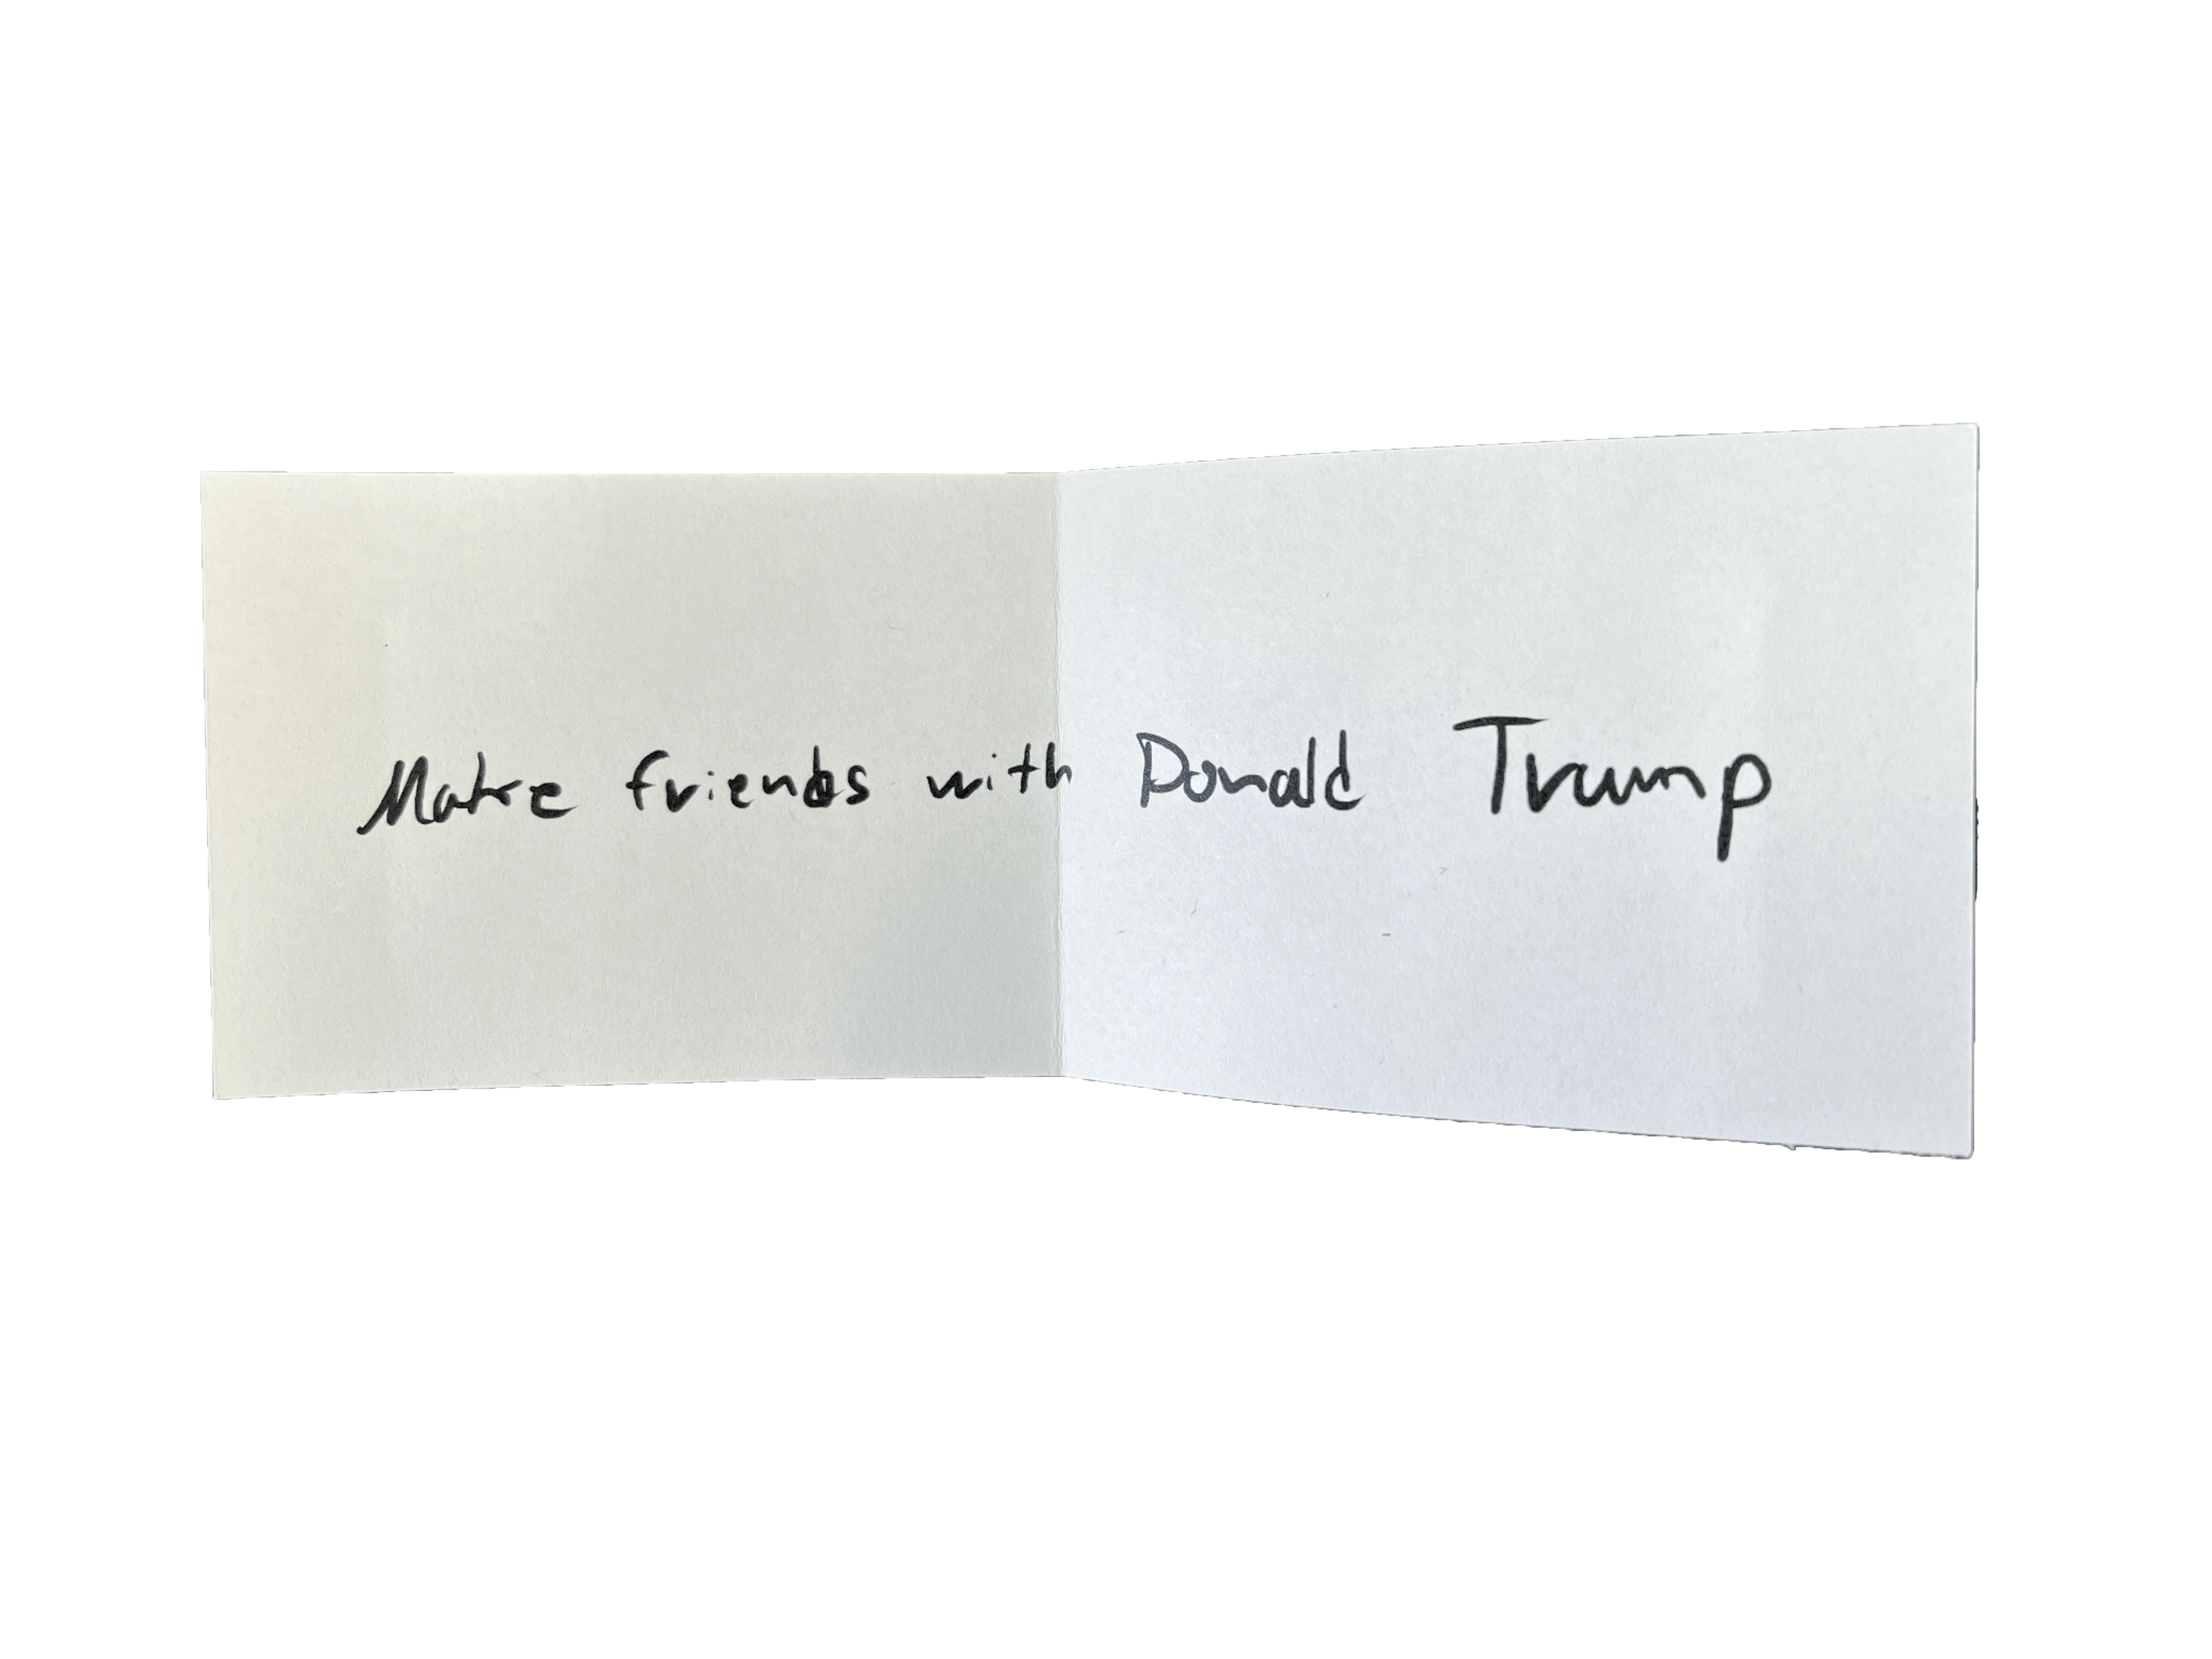 Make friends with Donald Trump